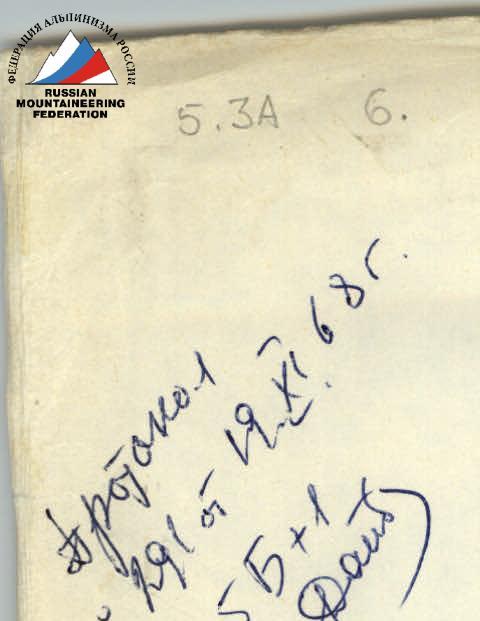 ФЕДЕРАЦИЯ АЛЬПИНИЗМА РОССИИ
RUSSIAN
MOUNTAINEERING
FEDERATION
5.3А 6.
Протокол
291 от 19.XI.68г.
5Б+1